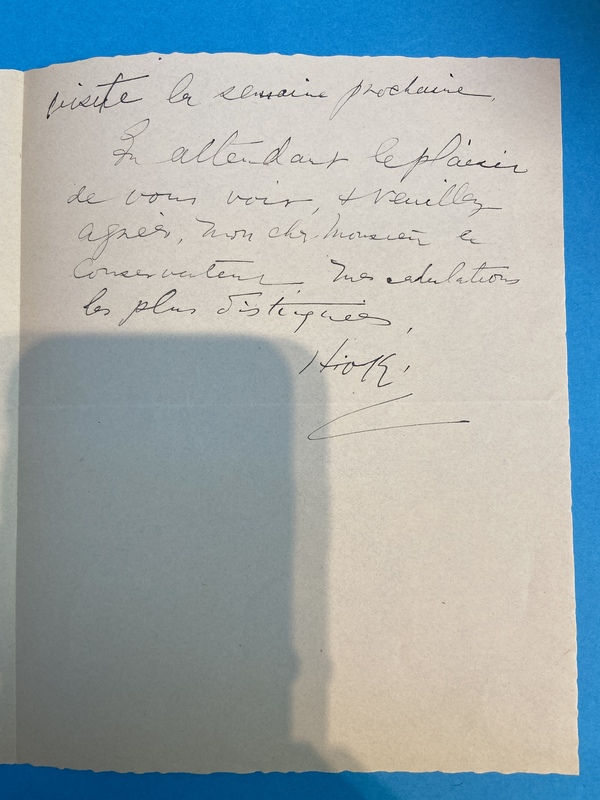 visite la semaine prochaine.
En attendant le plaisir
de vous voir, & veuillez
agréer, mon cher Monsieur le
Conservateur mes salutations
les plus distinguées,
Hioki.